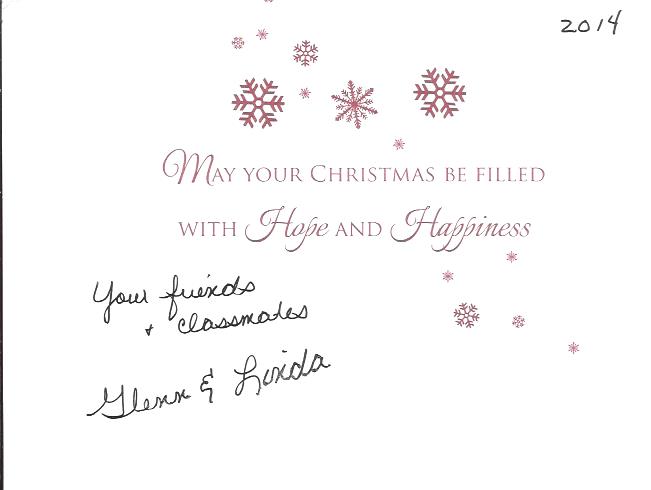 2014
MAY YOUR CHRISTMAS BE FILLED
WITH Hope AND Happiness
Your friends
+ classmates
Glenn & Linda